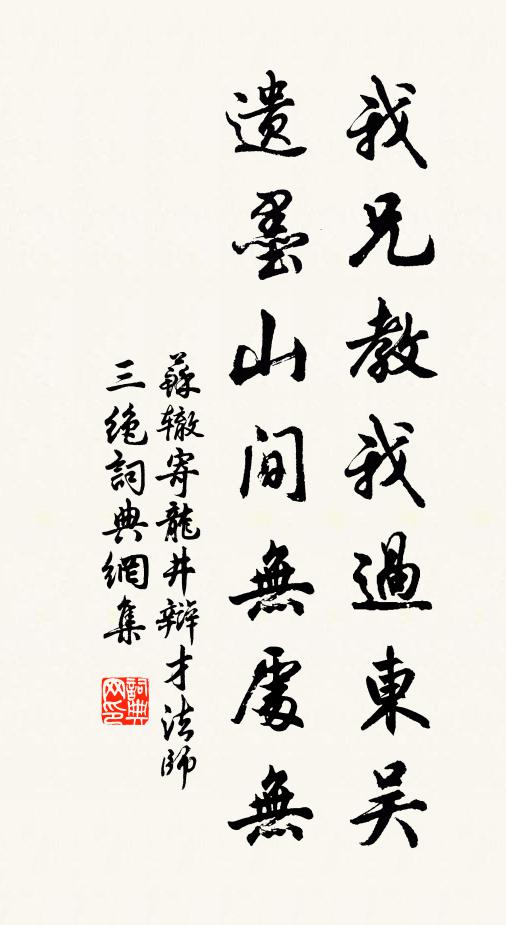 我兄教我過東吳
遺墨山間無處無
蘇辙寄龍井辯才法師
三绝詞典網集
詞典网印